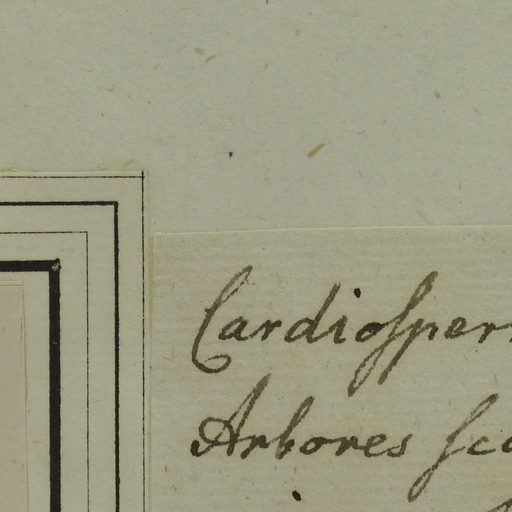 Cardioſper
Arbores ſca